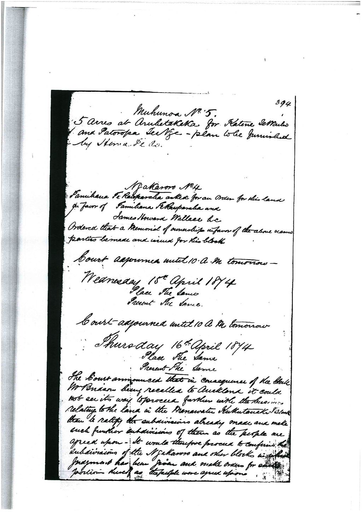 394
Muhunoa No 5.
5 Acres at Aruhetakaka for
and Patoropa - plan to be furnished
by
Ngakaroro No 4
Tamihana Te Rauparaha asked for an order for this land
in favor of Tamihana Te Rauparaha and
James Howard Wallace h.c
Ordered that a Memorial of ownership in favor of the above named
parties be made and issued for this block
Court adjourned until 10 A.M tomorrow
Wednesday 15th April 1874
Place The Same
Present The Same.
Court adjourned until 10 A M tomorrow
Thursday 16th April 1874
Place The Same
Present The Same
The Court announced that in consequence of the
being recalled to Auckland it could
not see its way to proceed further with the
relating to the land in the Manawatu
than to ratify the subdivisions already made and make
such further subdivisions of them as the people are
agreed upon - It would therefore proceed to confirm the
subdivisions of the Ngakaroro and other blocks in which
Judgment has been given and make orders for
portions as the people were agreed upon